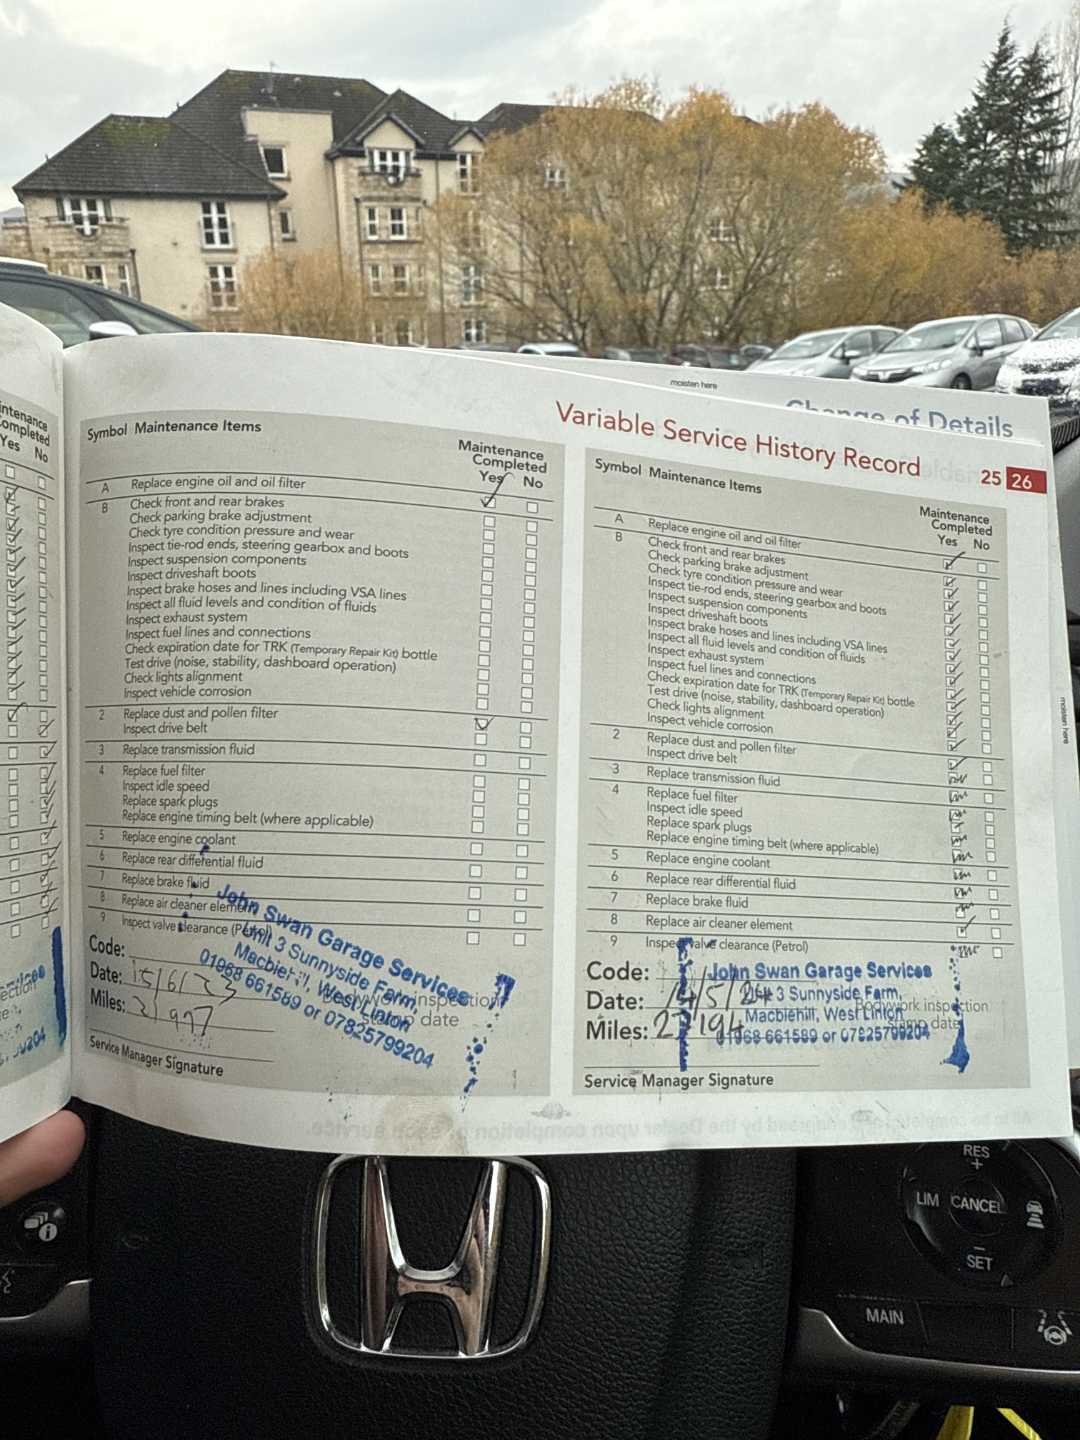 moisten here
Change of Details
Variable Service History Record
25 26
intenance
ompleted
Yes No
Symbol Maintenance Items
Maintenance
Completed
Yes No
A Replace engine oil and oil filter
B Check front and rear brakes
Check parking brake adjustment
Check tyre condition pressure and wear
Inspect tie-rod ends, steering gearbox and boots
Inspect suspension components
Inspect driveshaft boots
Inspect brake hoses and lines including VSA lines
Inspect all fluid levels and condition of fluids
Inspect exhaust system
Inspect fuel lines and connections
Check expiration date for TRK (Temporary Repair Kit) bottle
Test drive (noise, stability, dashboard operation)
Check lights alignment
Inspect vehicle corrosion
2 Replace dust and pollen filter
Inspect drive belt
3 Replace transmission fluid
4 Replace fuel filter
Inspect idle speed
Replace spark plugs
Replace engine timing belt (where applicable)
5 Replace engine coolant
6 Replace rear differential fluid
7 Replace brake fluid
8 Replace air cleaner element
9 Inspect valve clearance (Petrol)
John Swan Garage Services
Unit 3 Sunnyside Farm,
Macbiehill, West Linton
01968 661589 or 07825799204
Code:
Date: 15/6/23
Miles: 21977
Bodywork inspection
stamp date
Service Manager Signature
Symbol Maintenance Items
Maintenance
Completed
Yes No
A Replace engine oil and oil filter
B Check front and rear brakes
Check parking brake adjustment
Check tyre condition pressure and wear
Inspect tie-rod ends, steering gearbox and boots
Inspect suspension components
Inspect driveshaft boots
Inspect brake hoses and lines including VSA lines
Inspect all fluid levels and condition of fluids
Inspect exhaust system
Inspect fuel lines and connections
Check expiration date for TRK (Temporary Repair Kit) bottle
Test drive (noise, stability, dashboard operation)
Check lights alignment
Inspect vehicle corrosion
2 Replace dust and pollen filter
Inspect drive belt
3 Replace transmission fluid
4 Replace fuel filter
Inspect idle speed
Replace spark plugs
Replace engine timing belt (where applicable)
5 Replace engine coolant
6 Replace rear differential fluid
7 Replace brake fluid
8 Replace air cleaner element
9 Inspect valve clearance (Petrol)
Code:
John Swan Garage Services
Date: 14/5/24
Unit 3 Sunnyside Farm,
Macbiehill, West Linton
Miles: 27194
01968 661589 or 07825799204
Bodywork inspection
stamp date
Service Manager Signature
moisten here
RES
+
LIM CANCEL
−
SET
MAIN